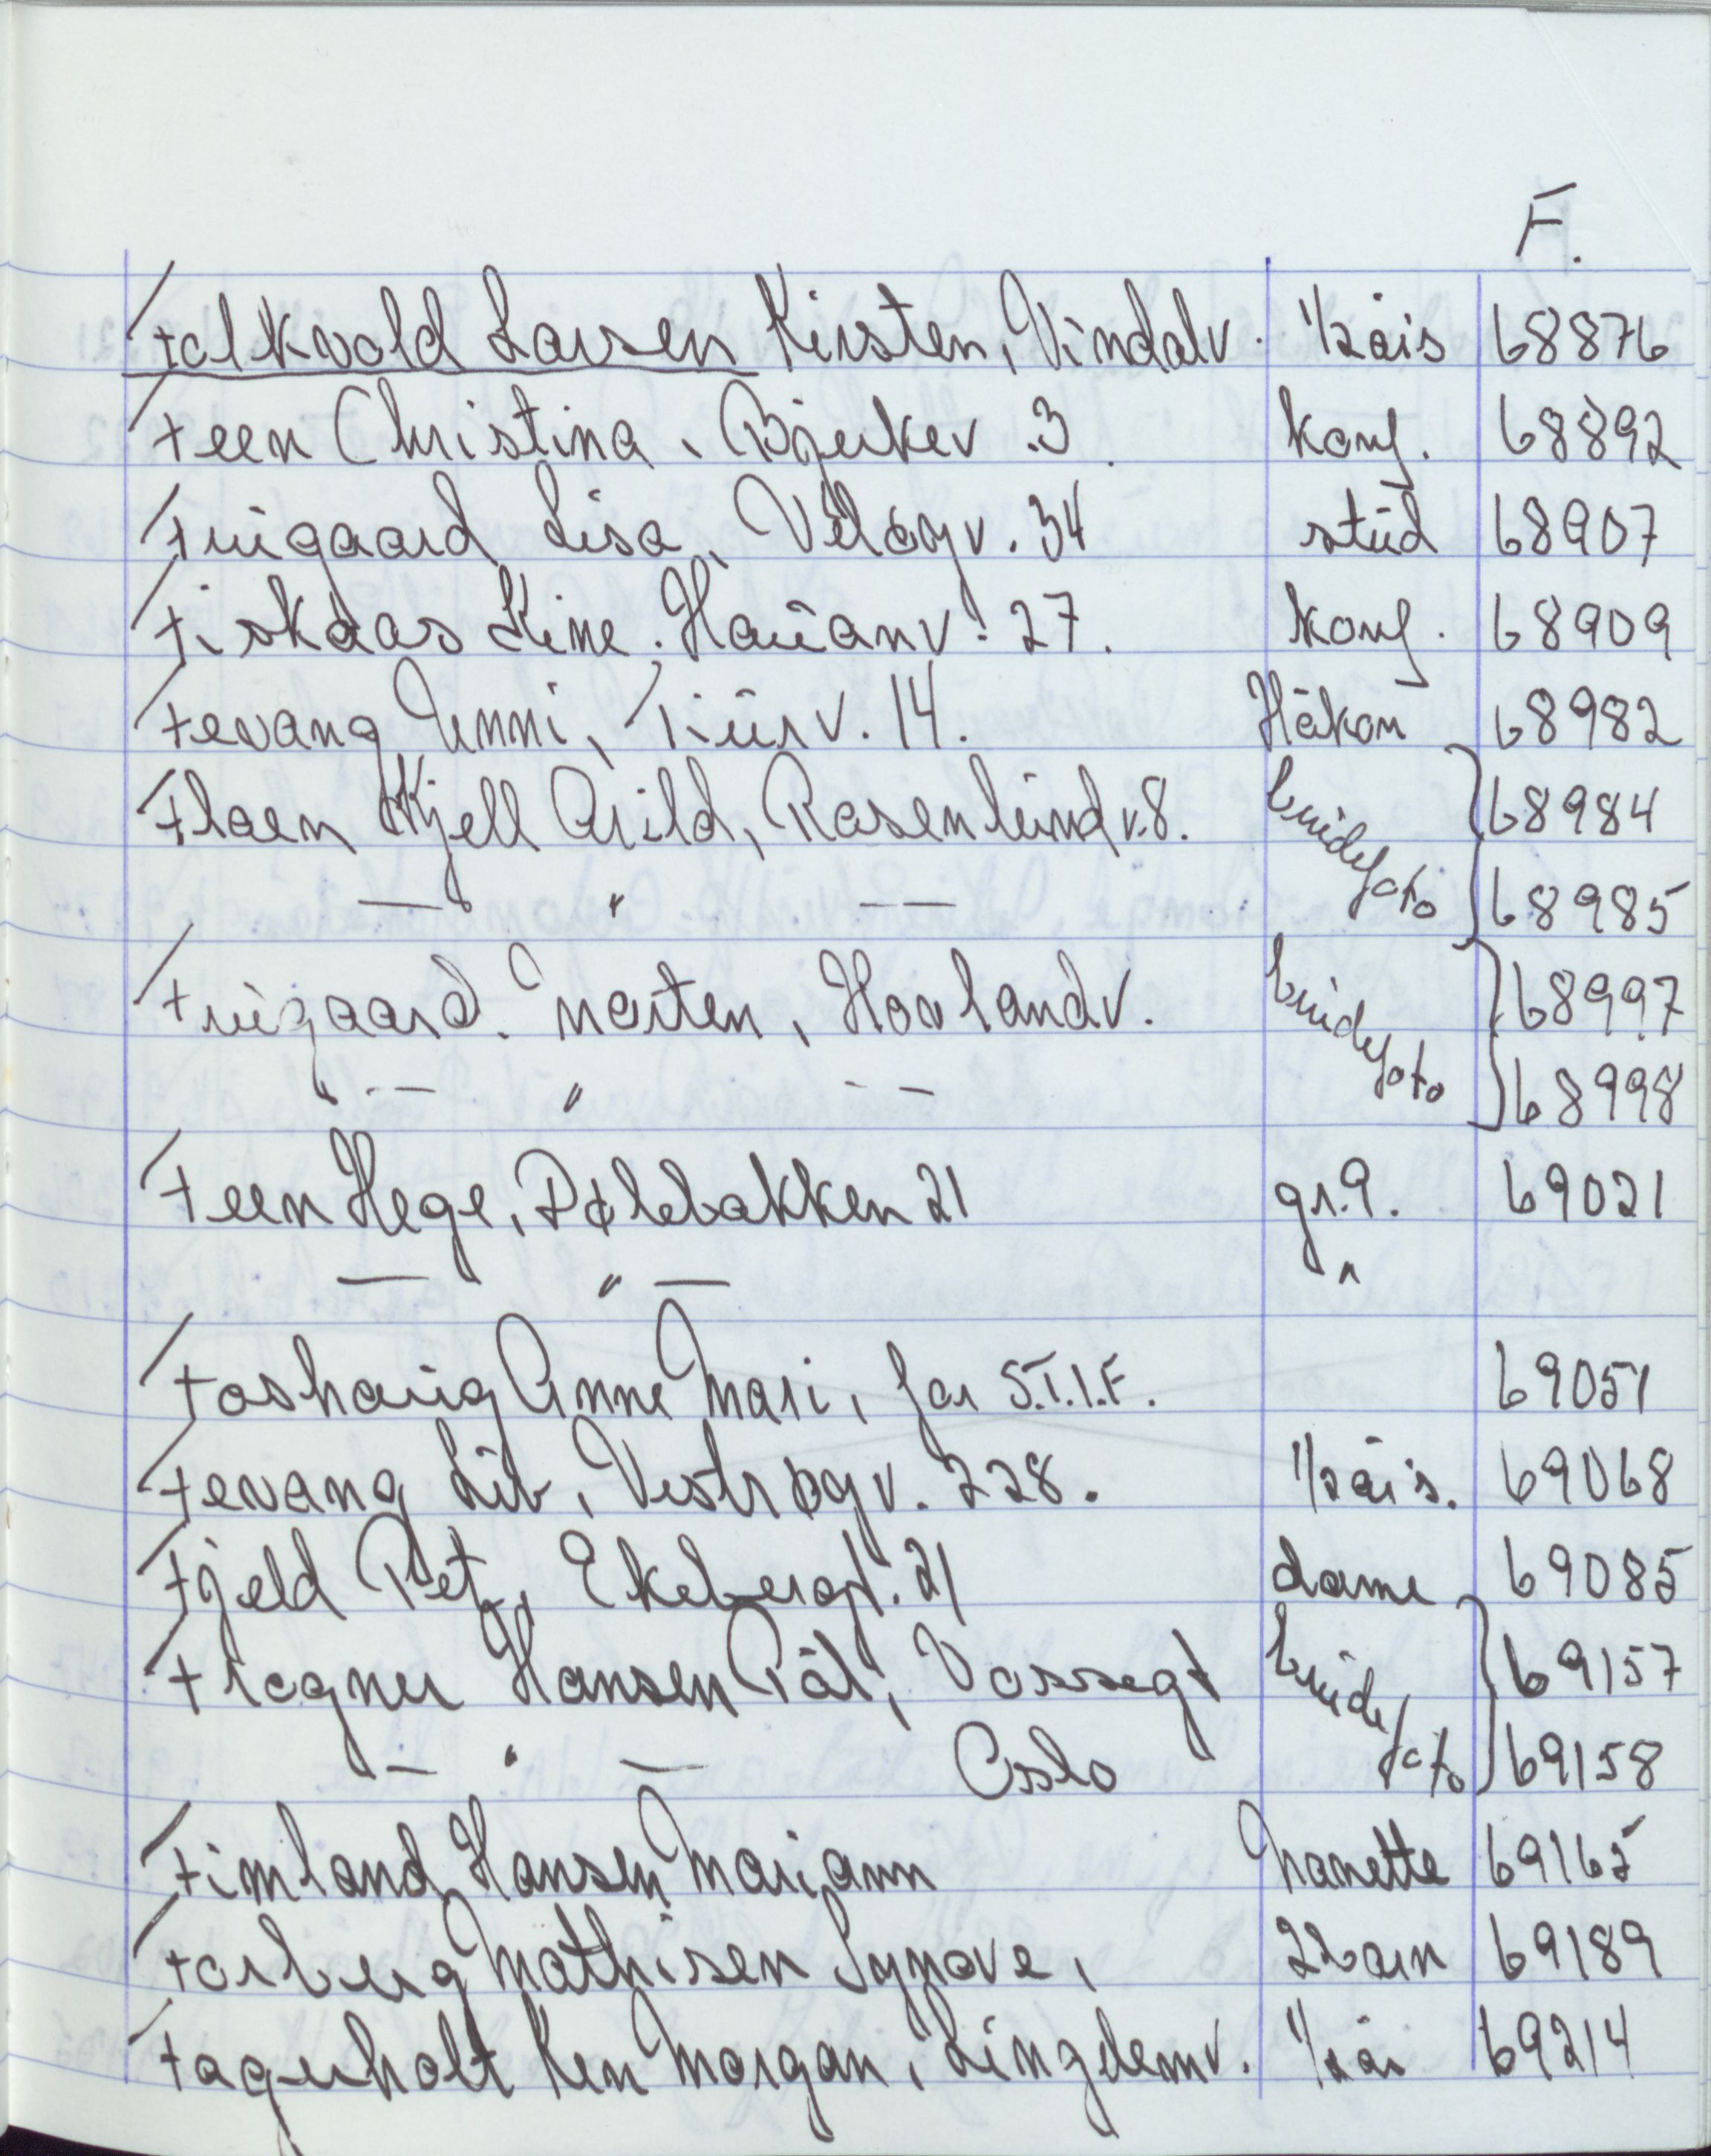 F.
Falkvold Larsen Kirsten, Vindalv. 1/2års 68876
Feen Christina, Bjerkev. 3. konf. 68892
Furigaard Lisa, Vëløyv. 34 stud 68907
Fiskaas Line. Hauanv. 27. konf. 68909
Fevang Unni, Furuv. 14. Håkon 68982
Floen Kjell Arild, Rosenlundv. 8. brudefoto 68984
— " — 68985
Furigaard. Morten, Hovlandv. brudefoto 68997
— " — 68998
Feen Hege, Dølebakken 21 gr.9. 69021
— " — "
Foshaug Anne Mari, for S.T.I.F. 69051
Fevang Liv, Vestrøyv. 228. 1/2års. 69068
Fjeld Pet, Ekebergt. 21 dame 69085
Fragner Hansen Pål, Vossegt brudefoto 69157
— " — Oslo 69158
Fimland Hansen Mariann Nanette 69165
Forberg Mathisen Synøve, 2 barn 69189
Fagerholt Ken Morgan, Lingelemv. 1/2år 69214